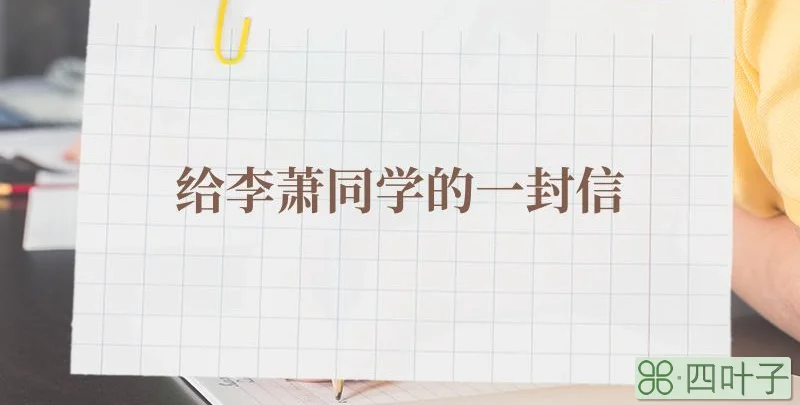 给李萧同学的一封信
四叶子